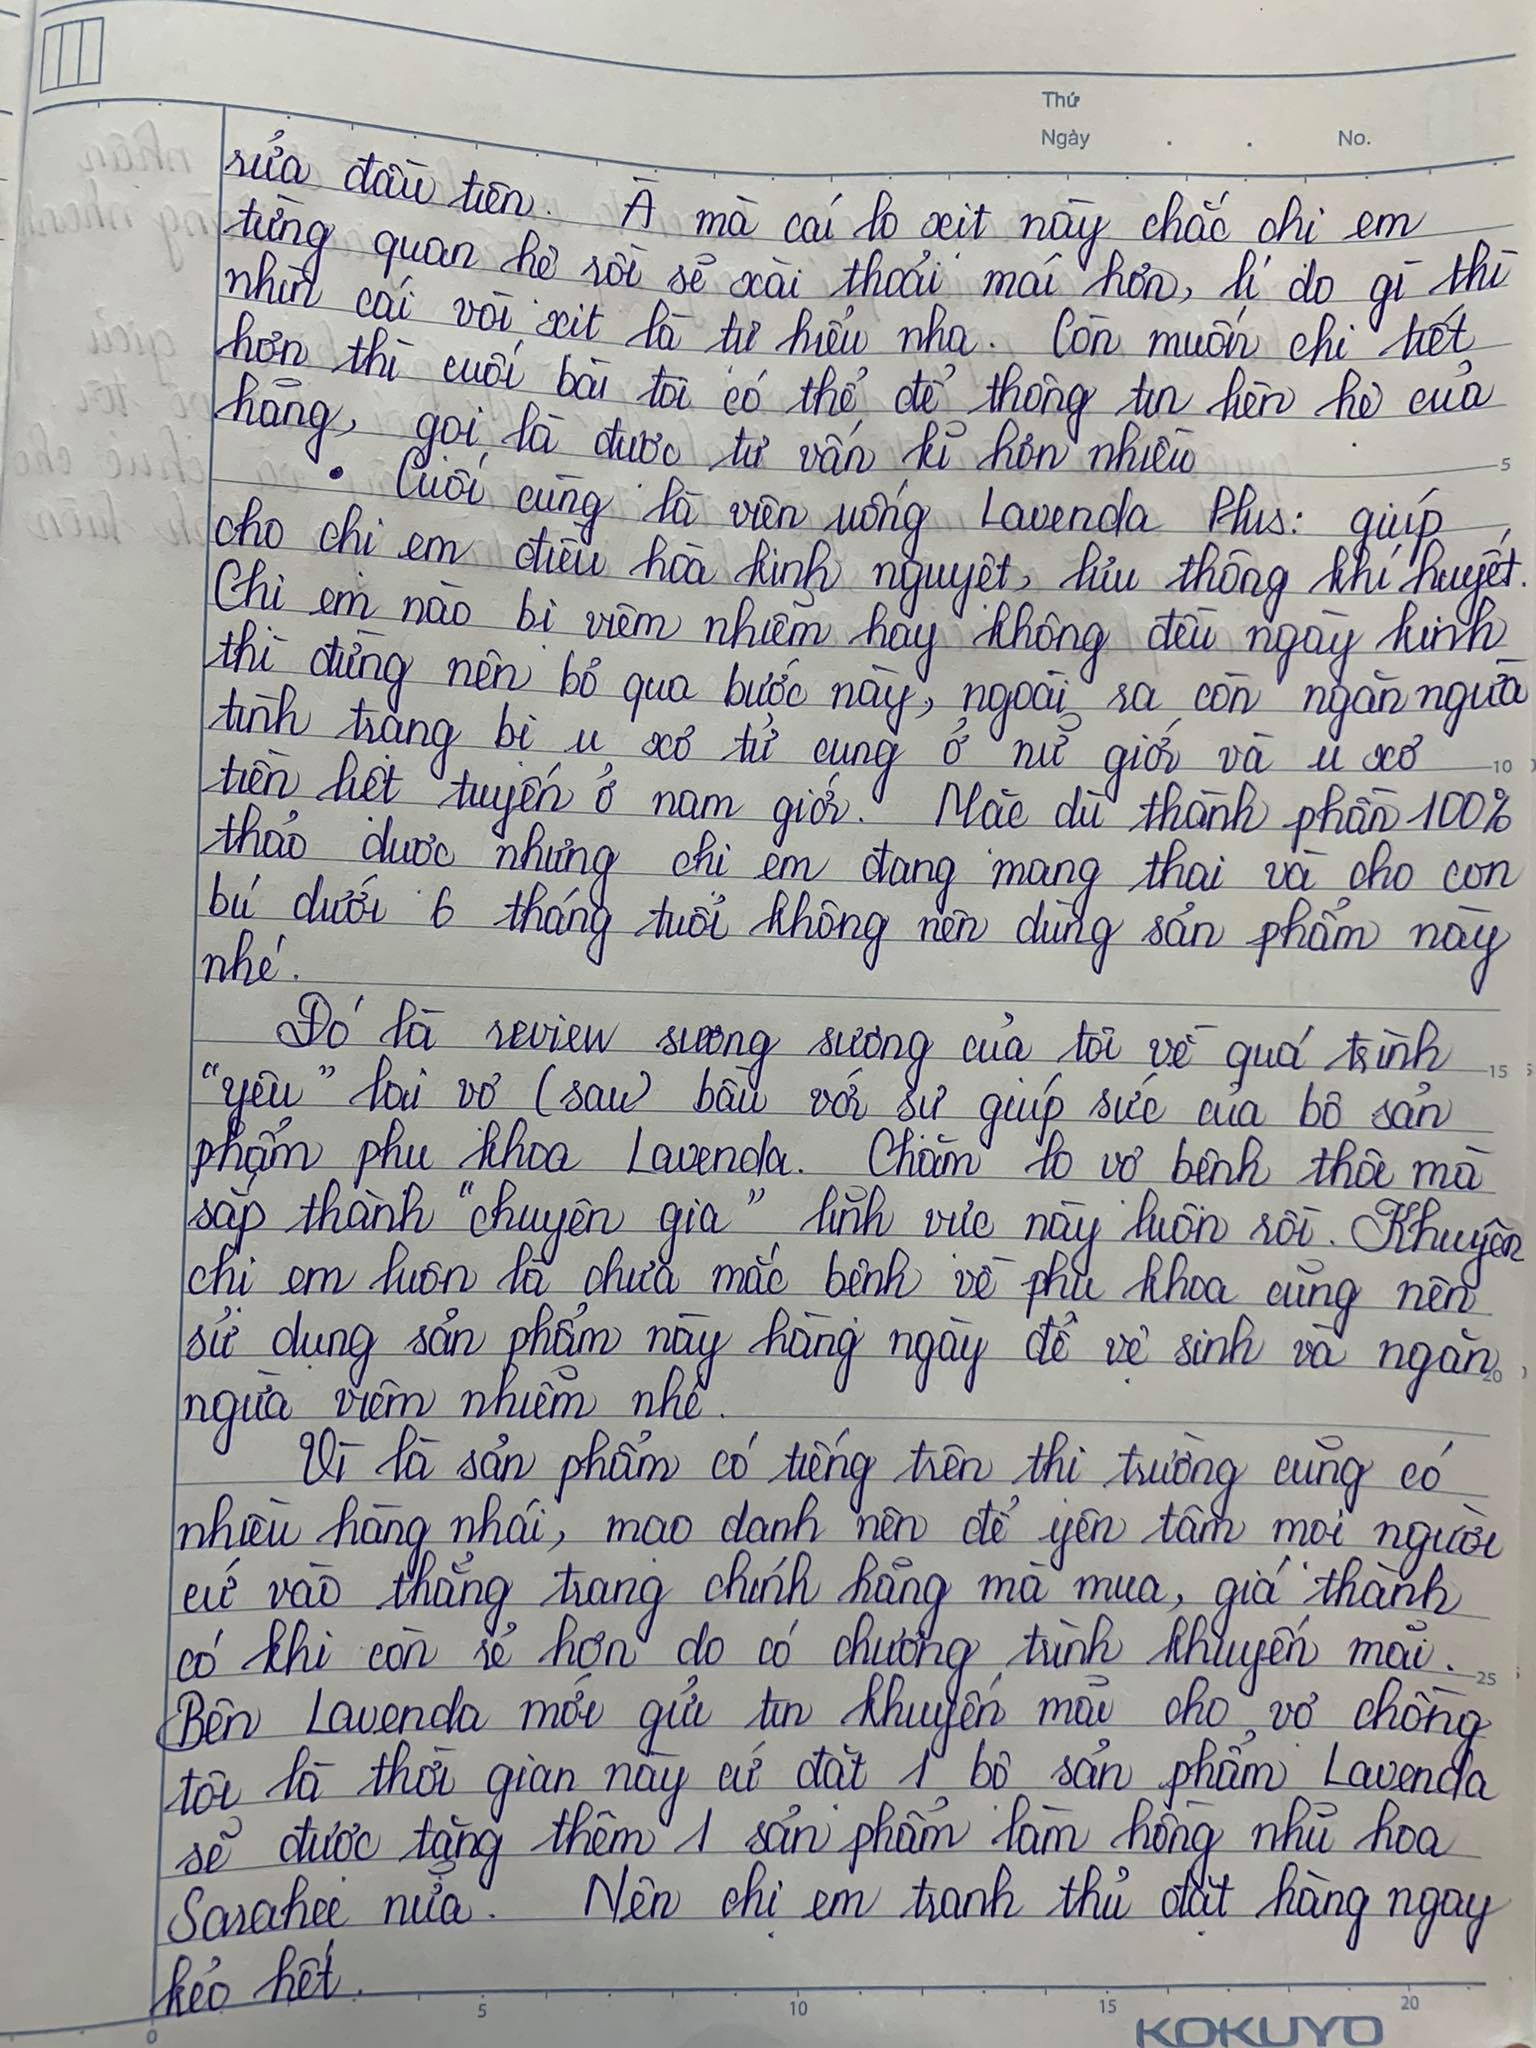 Thứ
Ngày . . No.
rửa đầu tiên. À mà cái lọ xịt này chắc chị em
từng quan hệ rồi sẽ xài thoải mái hơn, lí do gì thì
nhìn cái vòi xịt là tự hiểu nha. Còn muốn chi tiết
hơn thì cuối bài tôi có thể để thông tin liên hệ của
hãng, gọi là được tư vấn kĩ hơn nhiều
• Cuối cùng là viên uống Lavenda Plus: giúp
cho chị em điều hòa kinh nguyệt, lưu thông khí huyết.
Chị em nào bị viêm nhiễm hay không đều ngày kinh
thì đừng nên bỏ qua bước này, ngoài ra còn ngăn ngừa
tình trạng bị u xơ tử cung ở nữ giới và u xơ
tiền liệt tuyến ở nam giới. Mặc dù thành phần 100%
thảo dược nhưng chị em đang mang thai và cho con
bú dưới 6 tháng tuổi không nên dùng sản phẩm này
nhé.
Đó là review sương sương của tôi về quá trình
"yêu" lại vợ (sau) bầu với sự giúp sức của bộ sản
phẩm phụ khoa Lavenda. Chăm lo vợ bệnh thôi mà
sắp thành "chuyên gia" lĩnh vực này luôn rồi. Khuyên
chị em luôn là chưa mắc bệnh về phụ khoa cũng nên
sử dụng sản phẩm này hàng ngày để vệ sinh và ngăn
ngừa viêm nhiễm nhé.
Vì là sản phẩm có tiếng trên thị trường cũng có
nhiều hàng nhái, mạo danh nên để yên tâm mọi người
cứ vào thẳng trang chính hãng mà mua, giá thành
có khi còn rẻ hơn do có chương trình khuyến mãi.
Bên Lavenda mới gửi tin khuyến mãi cho vợ chồng
tôi là thời gian này cứ đặt 1 bộ sản phẩm Lavenda
sẽ được tặng thêm 1 sản phẩm làm hồng nhũ hoa
Sarahee nữa. Nên chị em tranh thủ đặt hàng ngay
kẻo hết.
0 5 10 15 20
KOKUYO